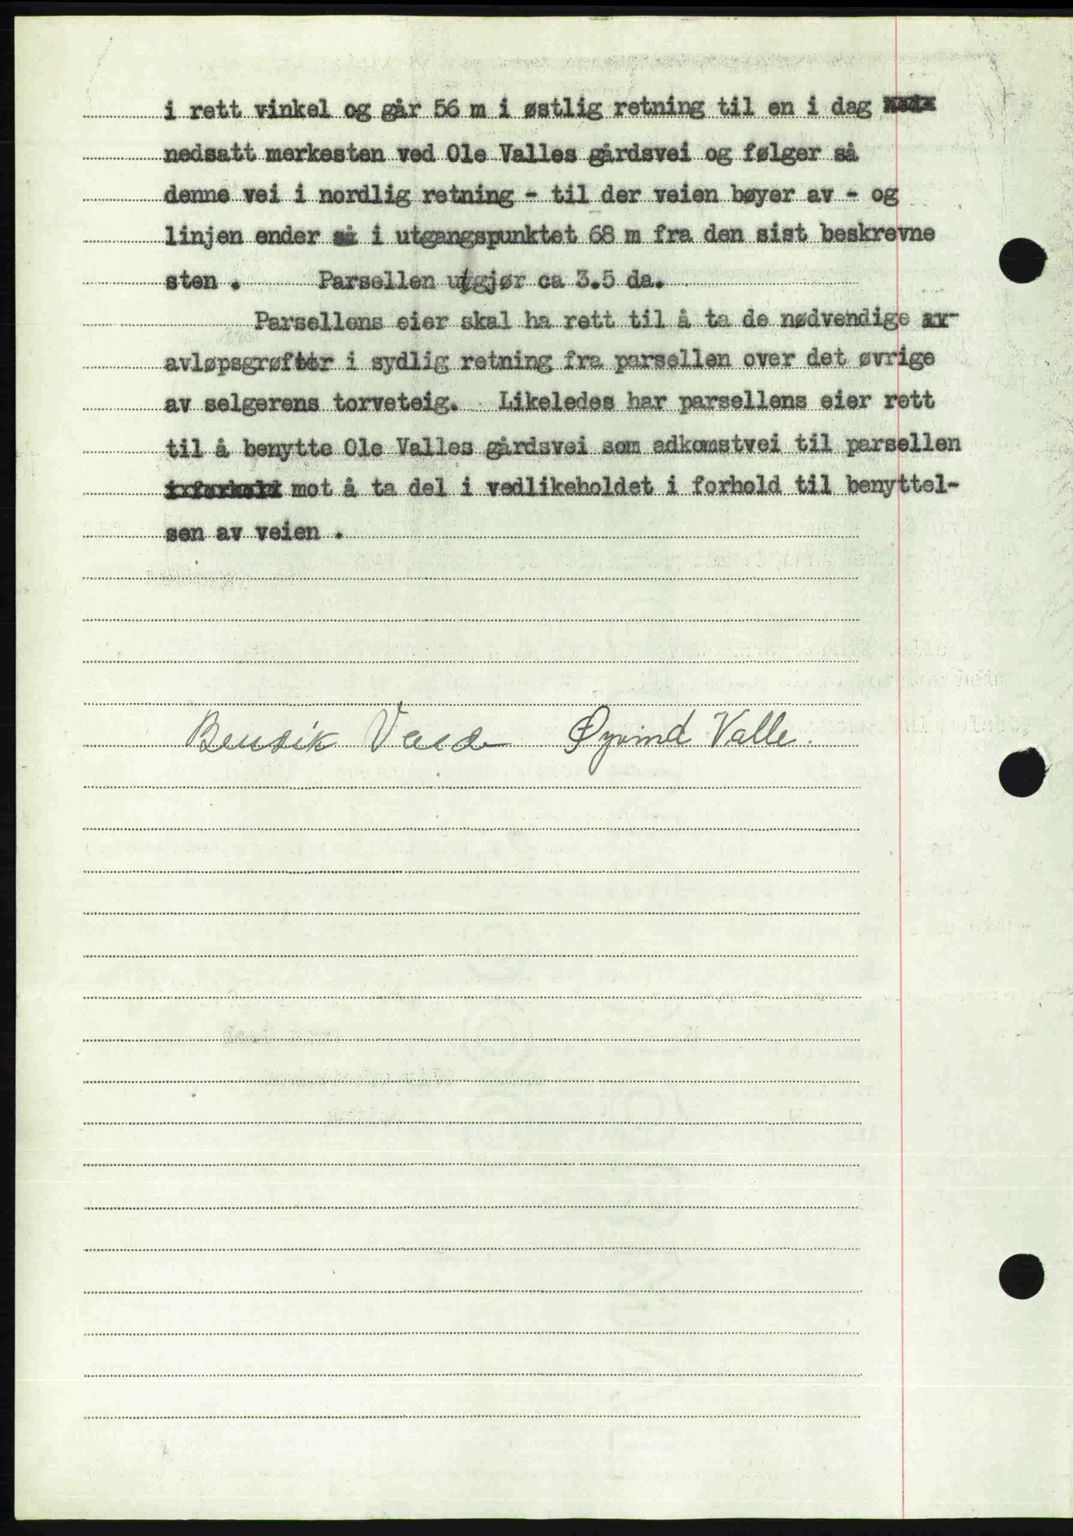 i rett vinkel og går 56 m i østlig retning til en i dag
nedsatt merkesten ved Ole Valles gårdsvei og følger så
denne vei i nordlig retning - til der veien bøyer av - og
linjen ender så i utgangspunktet 68 m fra den sist beskrevne
sten . Parsellen utgjør ca 3.5 da.
Parsellens eier skal ha rett til å ta de nødvendige
avløpsgrøfter i sydlig retning fra parsellen over det øvrige
av selgerens torveteig. Likeledes har parsellens eier rett
til å benytte Ole Valles gårdsvei som adkomstvei til parsellen
mot å ta del i vedlikeholdet i forhold til benyttel-
sen av veien .
Øyvind Valle.